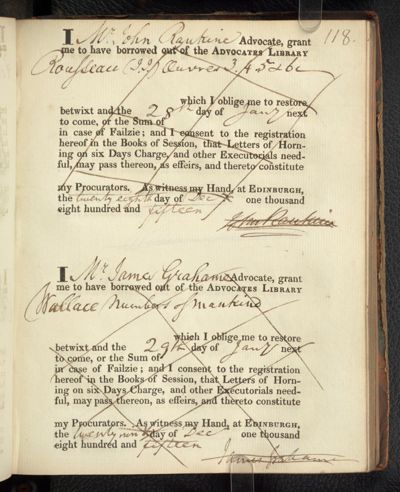 118.
I Mr. John Rankine Advocate, grant
me to have borrowed out of the ADVOCATES LIBRARY
Rousseau (J.J) Oeuvres 3. 4 5 & 6
which I oblige me to restore
betwixt and the 28th day of Jany next
to come, or the Sum of
in case of Failzie; and I consent to the registration
hereof in the Books of Session, that Letters of Horn-
ing on six Days Charge, and other Executorials need-
ful, may pass thereon, as effeirs, and thereto constitute
my Procurators. As witness my Hand, at EDINBURGH,
the twenty eighth day of Dec one thousand
eight hundred and fifteen
John Rankine
I Mr. James Grahame Advocate, grant
me to have borrowed out of the ADVOCATES LIBRARY
Wallace Numbers of Mankind
which I oblige me to restore
betwixt and the 29th day of Jany next
to come, or the Sum of
in case of Failzie; and I consent to the registration
hereof in the Books of Session, that Letters of Horn-
ing on six Days Charge, and other Executorials need-
ful, may pass thereon, as effeirs, and thereto constitute
my Procurators. As witness my Hand, at EDINBURGH,
the twenty ninth day of Dec one thousand
eight hundred and fifteen
James Grahame